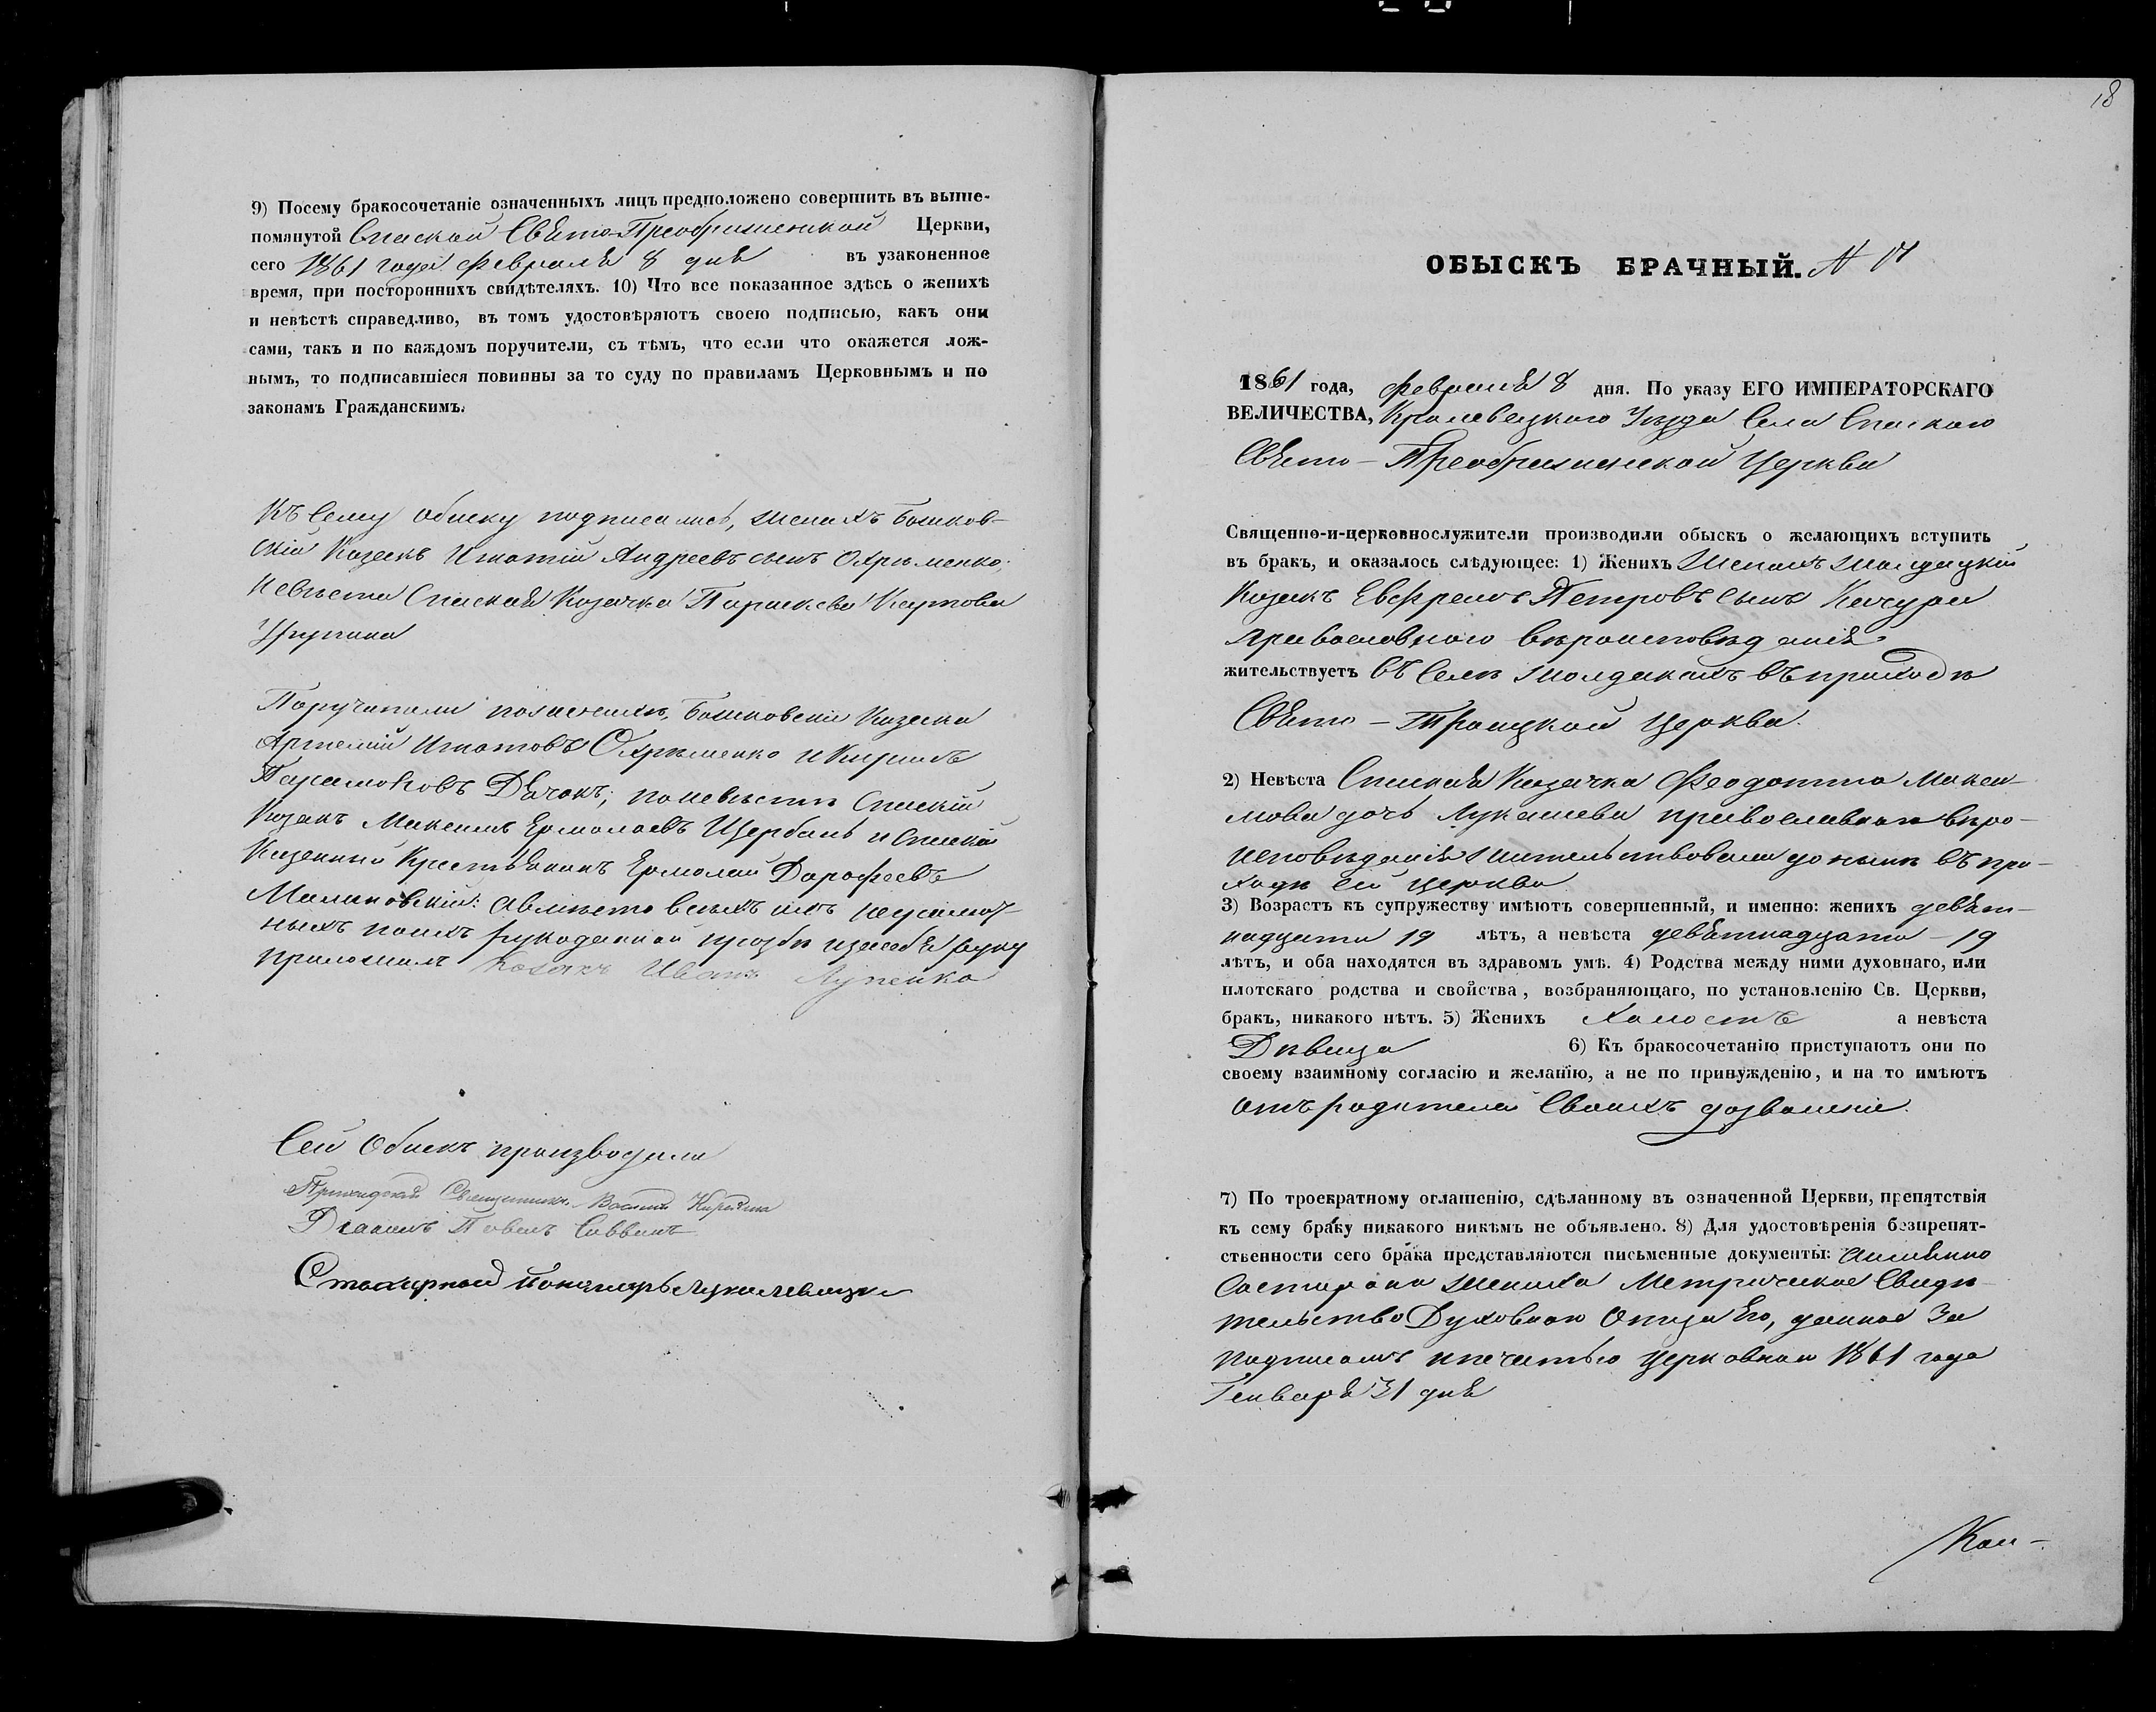 9) Посему бракосочетаніе означенныхъ лицъ предположено совершить въ выше-
помянутой Спаской Свято-Преображенской Церкви,
сего 1861 года Февраля 8 дня въ узаконенное
время, при постороннихъ свидѣтеляхъ. 10) Что все показанное здѣсь о женихѣ
и невѣстѣ справедливо, въ томъ удостовѣряютъ своею подписью, какъ они
сами, такъ и по каждомъ поручители, съ тѣмъ, что если что окажется лож-
нымъ, то подписавшіеся повинны за то суду по правиламъ Церковнымъ и по
законамъ Гражданскимъ.
Къ Сему обыску подписались, женихъ
скій Козакъ Игнатій Андреевъ сынъ Охрѣменко;
Невѣста Спаская Козачка Параскева Карпова
Поручители по женихѣ, Козаки
Артемій Игнатовъ Охрѣменко и Кирилъ
Парамоновъ Дячокъ; по невѣстѣ Спаскій
Козакъ Максимъ Ермолаевъ Щербакъ и Спаскій
Казенный Крестьянинъ Ермолай Дорофеевъ
Малиновскій: А вмѣсто всѣхъ ихъ неграмот-
ныхъ поихъ рукоданной прозбѣ и за себя руку
приложилъ Козакъ Иванъ Лупейко
Сей Обыскъ производили
Приходскій Священникъ Василій
Діаконъ Павелъ Саввинъ
18
ОБЫСКЪ БРАЧНЫЙ. N 17
1861 года, Февраля 8 дня. По указу ЕГО ИМПЕРАТОРСКАГО
ВЕЛИЧЕСТВА, Кролевецкаго Уѣзда Села Спаскаго
Свято-Преображенской Церкви
Священно-и-церковнослужители производили обыскъ о желающихъ вступить
въ бракъ, и оказалось слѣдующее: 1) Женихъ
Козакъ Евфремъ Петровъ сынъ Качура
православнаго вѣроисповѣданія
жительствуетъ въ Селѣ въ приходѣ
Свято-Троицкой Церкви.
2) Невѣста Спаская Козачка Феодотия Макси-
мова дочь Лукашева православнаго вѣро-
исповѣданія жительствовала до нынѣ въ при-
ходѣ сей церкви
3) Возрастъ къ супружеству имѣютъ совершенный, и именно: женихъ девят-
надцати 19 лѣтъ, а невѣста девятнадцати - 19
лѣтъ, и оба находятся въ здравомъ умѣ. 4) Родства между ними духовнаго, или
плотскаго родства и свойства, возбраняющаго, по установленію Св. Церкви,
бракъ, никакого нѣтъ. 5) Женихъ Холостъ а невѣста
Дѣвица 6) Къ бракосочетанію приступаютъ они по
своему взаимному согласію и желанію, а не по принужденію, и на то имѣютъ
отъ родителей Своихъ дозволеніе.
7) По троекратному оглашенію, сдѣланному въ означенной Церкви, препятствія
къ сему браку никакого никѣмъ не объявлено. 8) Для удостовѣренія безпрепят-
ственности сего брака представляются письменные документы: Аименно
Состороны жениха Метрическое Свидѣ-
тельство Духовнаго Отца Его, данное За
подписомъ и печатью церковною 1861 года
Генваря 31 дня